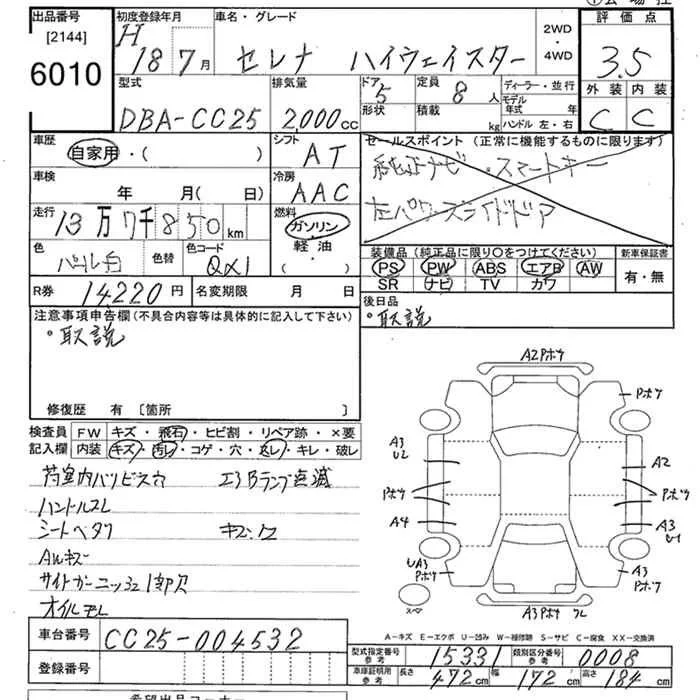 出品番号
[2144]
6010
初度登録年月
H 18年 7月
車名・グレード
セレナ ハイウェイスター
2WD
・
4WD
評価点
3.5
外装 内装
C C
型式
DBA-CC25
排気量
2,000cc
ドア 5
形状
定員 8人
積載 kg
ディーラー・並行
モデル
年式 年
ハンドル 左・右
車歴
自家用・( )
シフト
AT
車検
年 月(日)
冷房
AAC
走行
13万7千850km
燃料
ガソリン・
軽油・
( )
色
パール白
色替
色コード
QX1
R券 14220円
名変期限 月 日
セールスポイント(正常に機能するものに限ります)
純正ナビ・スマートキー
左パワースライドドア
装備品(純正品に限り○をつけてください)
新車保証書
PS PW ABS エアB AW
SR ナビ TV カワ
有・無
後日品
・取説
注意事項申告欄(不具合内容等は具体的に記入して下さい)
・取説
修復歴 有 [箇所 ]
検査員
記入欄
FW キズ・飛石・ヒビ割・リペア跡・×要
内装 キズ・汚レ・コゲ・穴・スレ・キレ・破レ
荷室内バリビス穴 エアBランプ点滅
ハンドルスレ
シートベタツ キズ・ハク
AWキズ
サイドガーニッシュ1部欠
オイルモレ
A2Pホツ
Pホツ
A3
U2
A2
Pホツ
Pホツ
A4
A3
U-1
UA3
Pホツ
A3
Pホツ
スペ
A3Pホツ ワレ
A-キズ E-エクボ U-凹み W-補修跡 S-サビ C-腐食 XX-交換済
車台番号
CC25-004532
登録番号
型式指定番号
参考
15331
類別区分番号
参考
0008
車庫証明用
参考
長さ 472cm 幅 172cm 高さ 184cm
希望出品コーナー